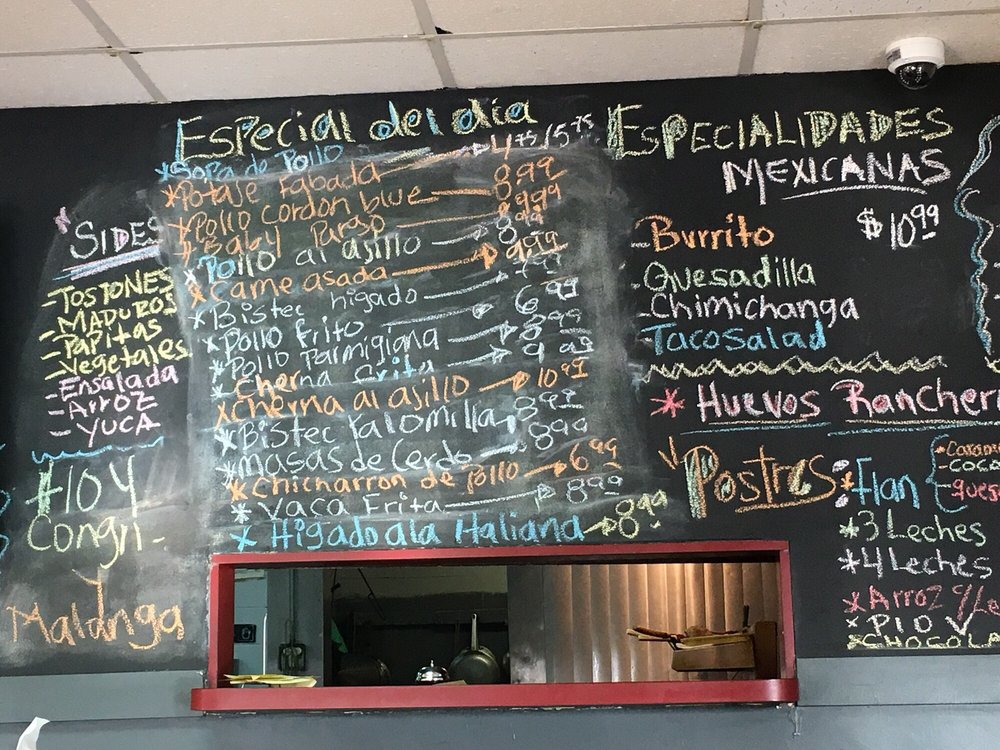 Especial del dia
*Sopa de Pollo 4.75/5.75
*Potaje Fabada 8.99
*Pollo cordon blue 8.99
*Baby Pargo 9.99
*Pollo al ajillo 8.99
*Carne asada 9.99
*Bistec higado 7.99
*Pollo Frito 6.99
*Pollo Parmigiana 8.99
*Cherna Frita 9.99
*Cherna al ajillo 10.99
*Bistec Palomilla 8.99
*masas de Cerdo 8.99
*Chicharron de Pollo 6.99
*Vaca Frita 8.99
*Higado a la Italiana 8.99
SIDES
-TOSTONES
-MADUROS
-PAPitas
-Vegetales
-Ensalada
-Arroz
-YUCA
HOY
Congri-
Malanga
ESPECIALIDADES
MEXICANAS
$10.99
-Burrito
-Quesadilla
-Chimichanga
-Taco Salad
*Huevos Rancher
Postres: *Flan {
*3 Leches
*4 Leches
*Arroz c/Le
*PIO
*CHOCOLA